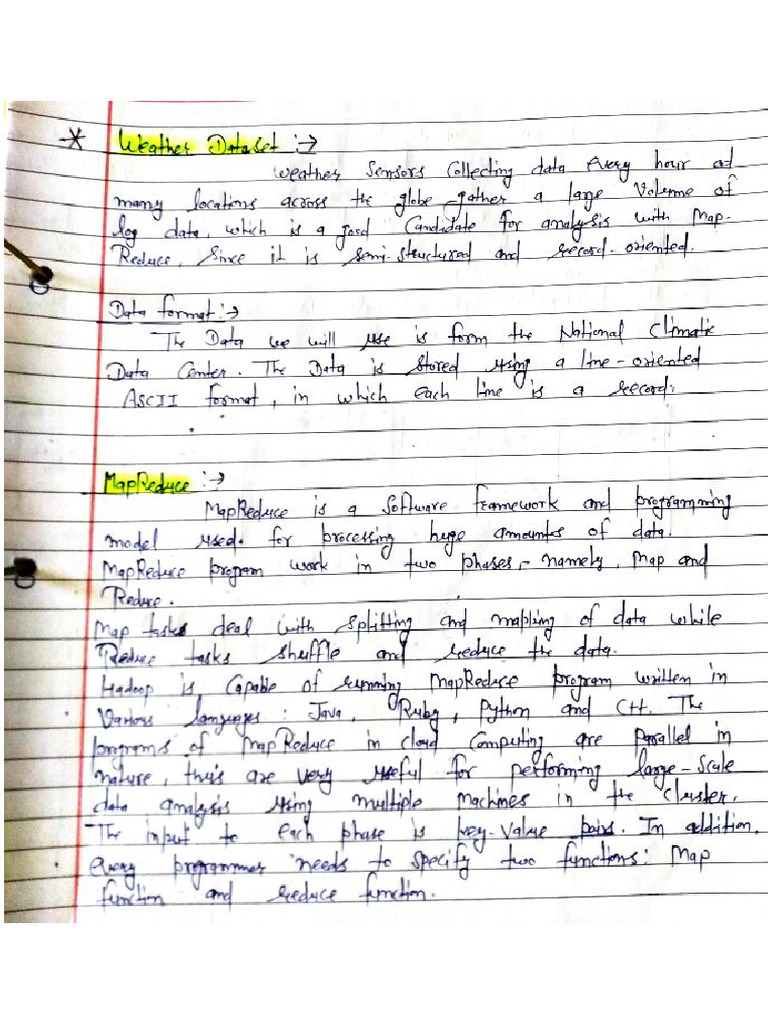 * Weather Dataset :→
Weather Sensors Collecting data Every hour at
many locations across the globe gather a large Volume of
log data, which is a good Candidate for analysis with Map-
Reduce, Since it is semi-structured and record-oriented.
Data format :→
The Data we will use is form the National Climatic
Data Center. The Data is stored using a line-oriented
ASCII format, in which each line is a record.
MapReduce :→
MapReduce is a Software framework and programming
model used for processing huge amountes of data.
MapReduce program work in two phases,- namely, Map and
Reduce.
Map tasks deal with splitting and mapping of data while
Reduce tasks shuffle and reduce the data.
Hadoop is Capable of running MapReduce program written in
Various languages: Java, Ruby, Python and C++. The
programs of MapReduce in cloud Computing are parallel in
nature, thus are very useful for performing large-scale
data analysis using multiple machines in the cluster.
The input to each phase is key-value pairs. In addition,
every programmer needs to specify two functions: Map
function and reduce function.